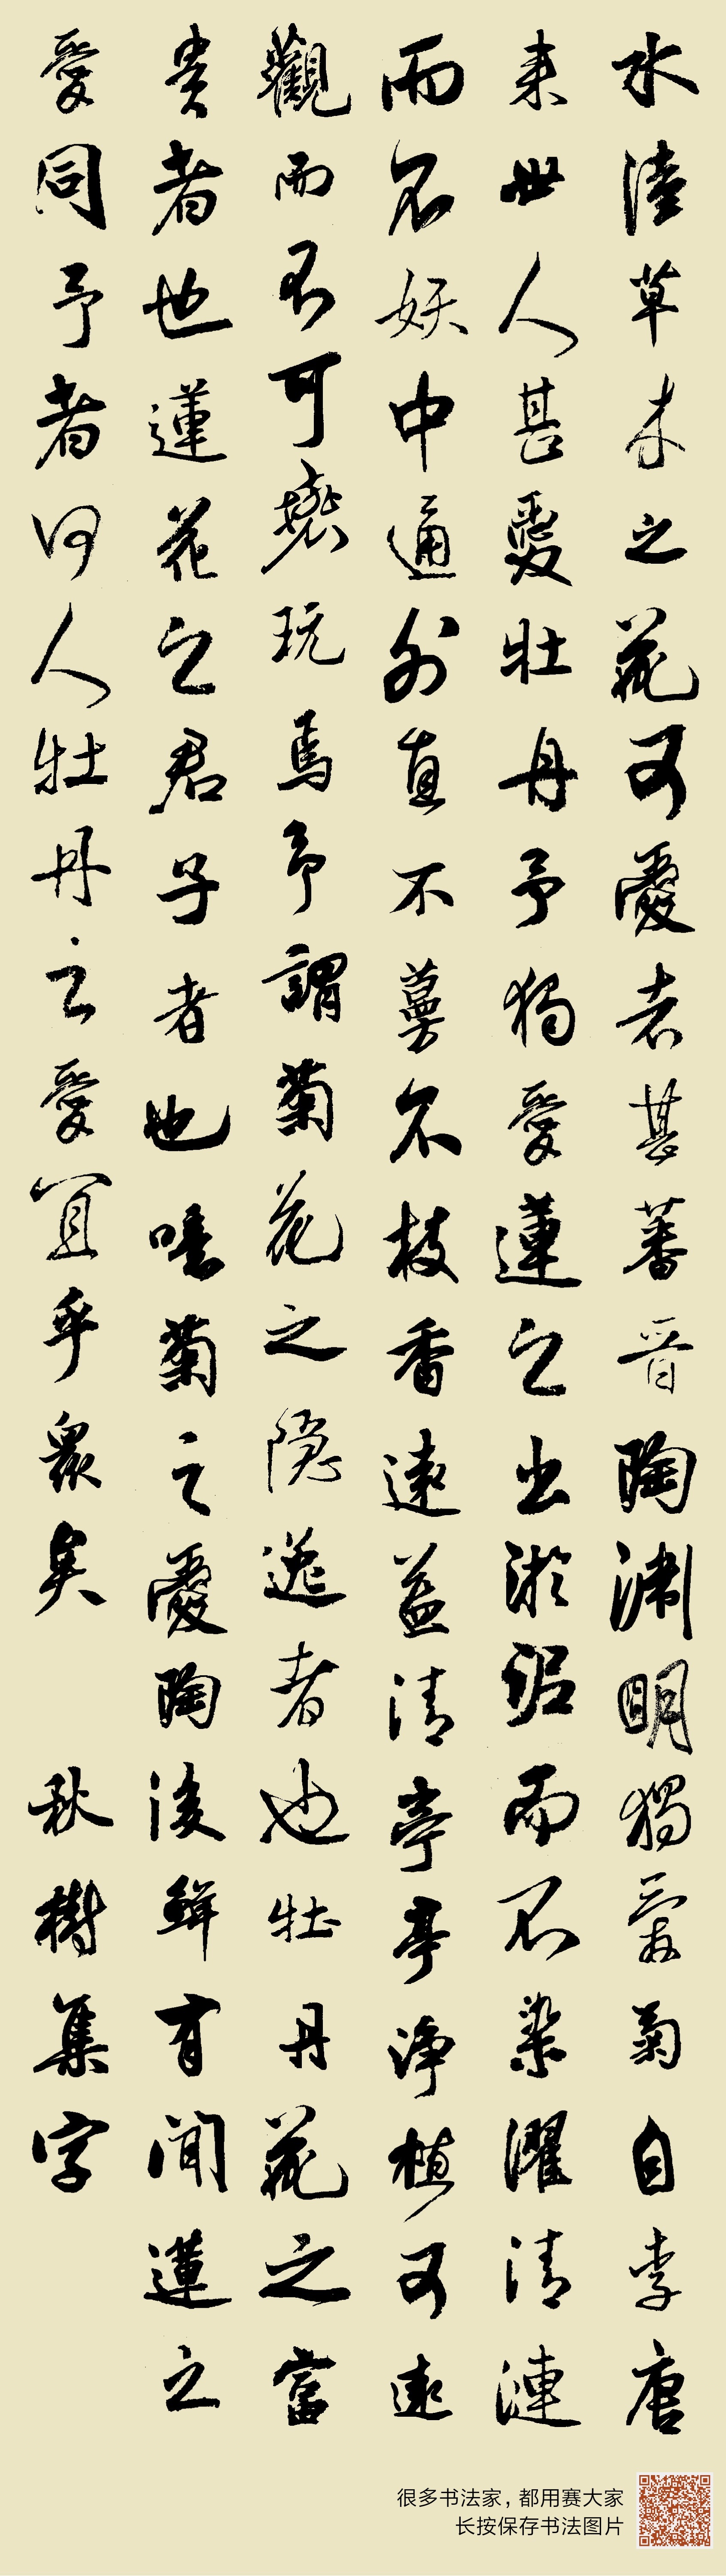 水陸草木之花可愛者甚蕃晉陶淵明獨愛菊自李唐
来世人甚愛牡丹予獨愛蓮之出淤泥而不染濯清漣
而不妖中通外直不蔓不枝香遠益清亭亭淨植可遠
觀而不可褻玩焉予謂菊花之隱逸者也牡丹花之富
貴者也蓮花之君子者也噫菊之愛陶後鮮有聞蓮之
愛同予者何人牡丹之愛宜乎衆矣 秋樹集字
很多书法家，都用赛大家
长按保存书法图片